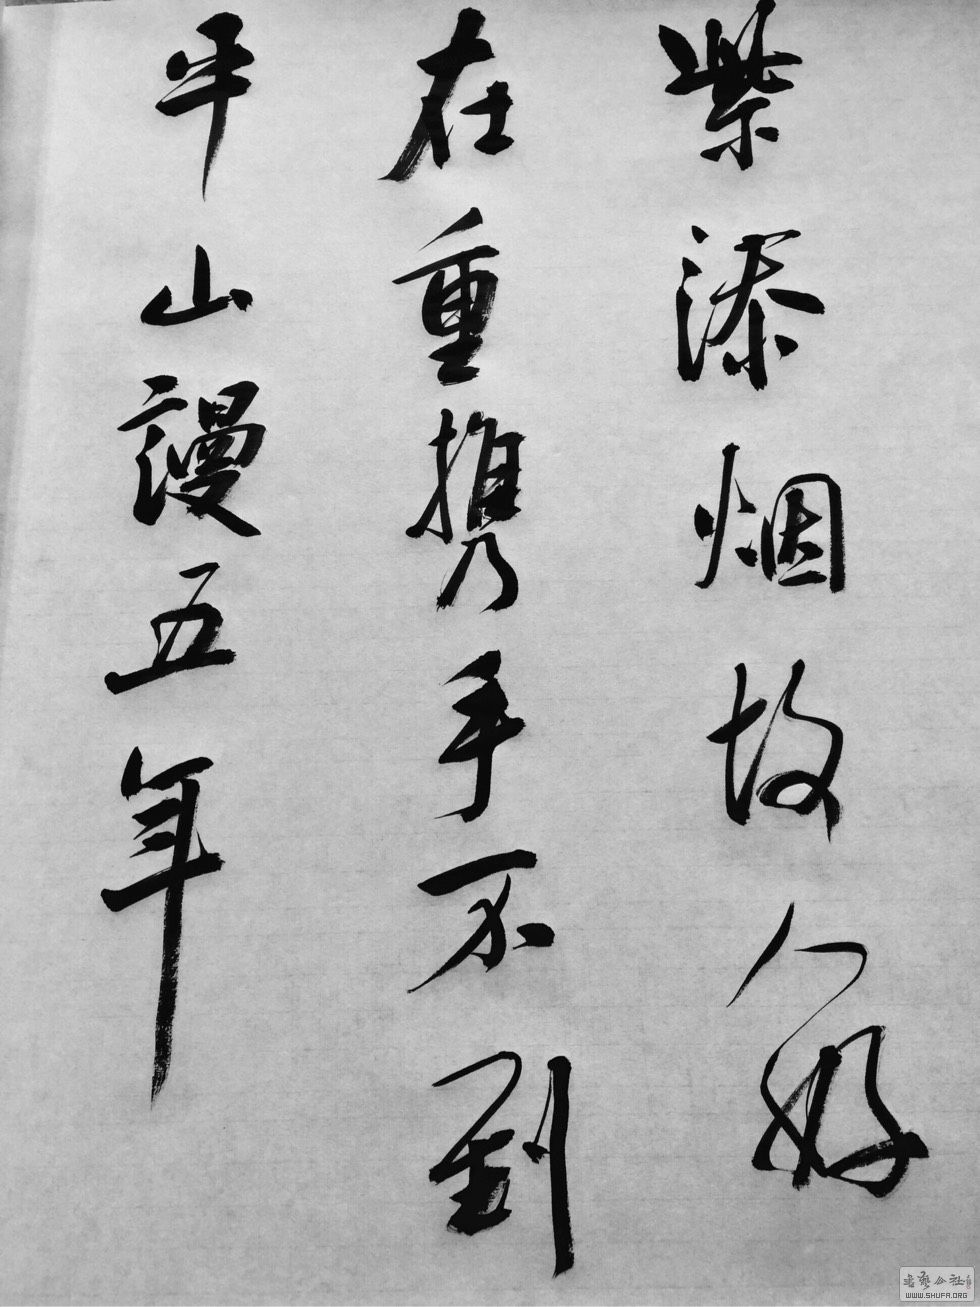 紫漆烟故人好
在重携手不到
平山謾五年
書艺公社
WWW.SHUFA.ORG